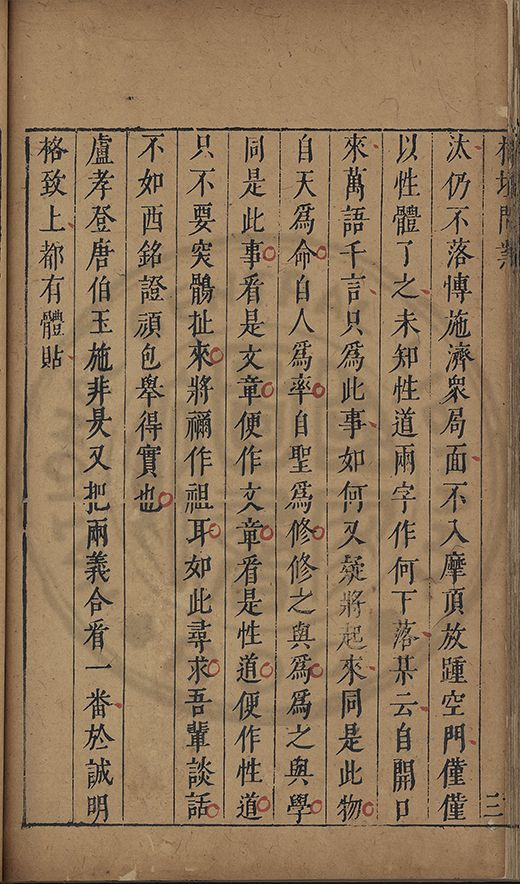 榕壇問業
汰仍不落愽施濟衆局面不入摩頂放踵空門僅僅
以性體了之未知性道兩字作何下落某云自開口
來萬語千言只為此事如何又疑將起來同是此物
自天爲命自人爲率自聖爲修修之與爲爲之與學
同是此事看是文章便作文章看是性道便作性道
只不要突鶻扯來將禰作祖耳如此尋求吾輩談話
不如西銘證頑包舉得實也
盧孝登唐伯玉施非㠯又把兩義合看一番於誠明
格致上都有體貼
三